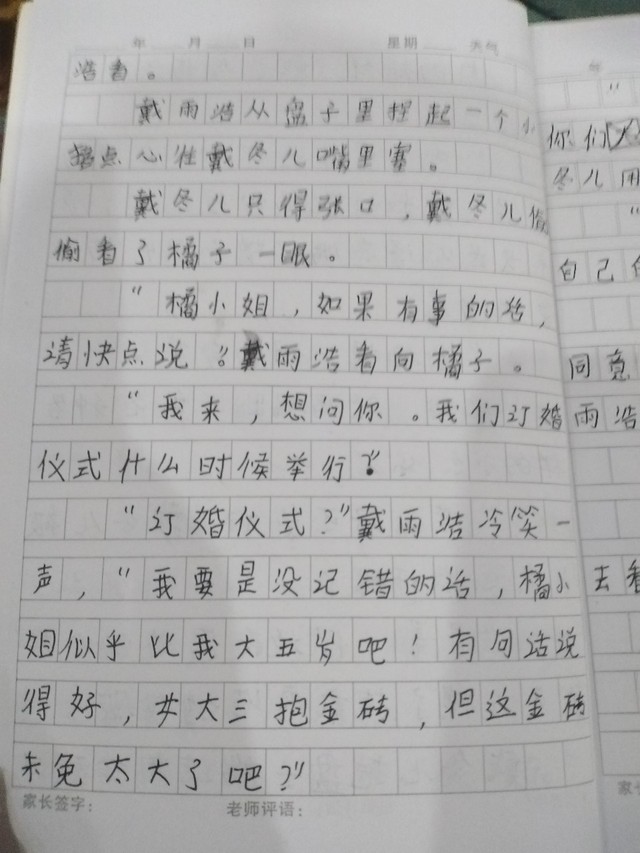 年 月 日 星期 天气
浩看。
戴雨浩从盘子里捏起一个小
点心往戴冬儿嘴里塞。
戴冬儿只得张口，戴冬儿偷
偷看了橘子一眼。
“橘小姐，如果有事的话，
请快点说。”戴雨浩看向橘子。
“我来，想问你。我们订婚
仪式什么时候举行？”
“订婚仪式？”戴雨浩冷笑一
声，“我要是没记错的话，橘小
姐似乎比我大五岁吧！有句话说
得好，女大三抱金砖，但这金砖
未免太大了吧？”
家长签字： 老师评语：
年
”
你们
冬儿用
“
自己
同意
雨浩
去看
家长